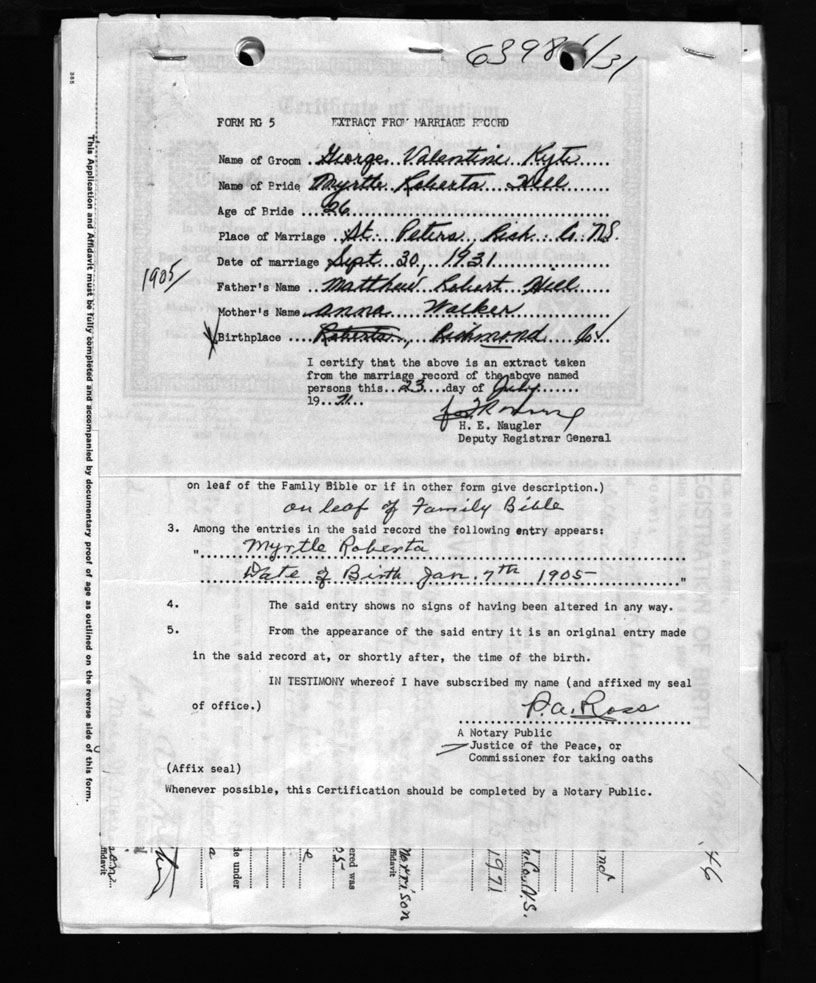 6398 1/31
FORM RG 5 EXTRACT FROM MARRIAGE RECORD
Name of Groom George Valentine Kyte
Name of Bride Myrtle Roberta Hill
Age of Bride 26
Place of Marriage St. Peters Rich. Co. N.S.
Date of marriage Sept. 30, 1931
1905
Father's Name Matthew Robert Hill
Mother's Name Anna Walker
Birthplace Roberta Richmond Co.
I certify that the above is an extract taken
from the marriage record of the above named
persons this 23 day of July
19 71
H. E. Naugler
Deputy Registrar General
on leaf of the Family Bible or if in other form give description.)
on leaf of Family Bible
3. Among the entries in the said record the following entry appears:
" Myrtle Roberta
Date of Birth Jan. 7th 1905 "
4. The said entry shows no signs of having been altered in any way.
5. From the appearance of the said entry it is an original entry made
in the said record at, or shortly after, the time of the birth.
IN TESTIMONY whereof I have subscribed my name (and affixed my seal
of office.)
P.A. Ross
A Notary Public
Justice of the Peace, or
Commissioner for taking oaths
(Affix seal)
Whenever possible, this Certification should be completed by a Notary Public.
This Application and Affidavit must be fully completed and accompanied by documentary proof of age as outlined on the reverse side of this form.
de under
ered was
Morrison
ffidavit
1971
. Co. N.S.
46